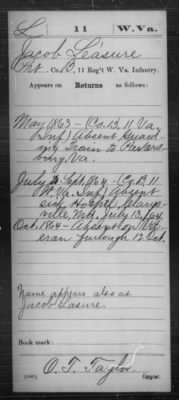 L | 11 | W. Va.
Jacob Leasure
Pvt., Co. B, 11 Reg't W. Va. Infantry.
Appears on Returns as follows:
May 1863 – (Co. B, 11 Va.
Inf) Absent Guard-
ing Train to Parkers-
burg, Va.
July & Sept. 1864 – (Co. B, 11
W. Va. Inf) Absent
sick Hospital
ville Md. July 13, /64
Oct. 1864 – Absent on Vet-
eran furlough 12 Oct.
Name appears also as
Jacob Lasure
Book mark:
O. T. Taylor
Copyist.